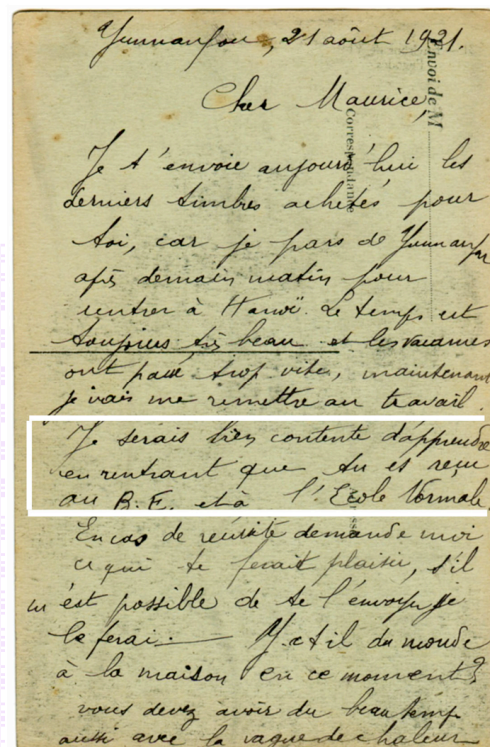 Yunnanfou, 21 août 1921.
Envoi de M
Cher Maurice,
Correspondance
Je t'envoie aujourd'hui les
derniers timbres achetés pour
toi, car je pars de Yunnanfou
après demain matin pour
rentrer à Hanoï. Le temps est
toujours très beau et les vacances
ont passé trop vite, maintenant
je vais me remettre au travail.
Je serais bien contente d'apprendre
en rentrant que tu es reçu
au B.E. et à l'Ecole Normale.
En cas de réussite demande moi
ce qui te ferait plaisir, s'il
m'est possible de te l'envoyer je
le ferai. — Y a t il du monde
à la maison en ce moment?
vous devez avoir du beau temp
aussi avec la vague de chaleur